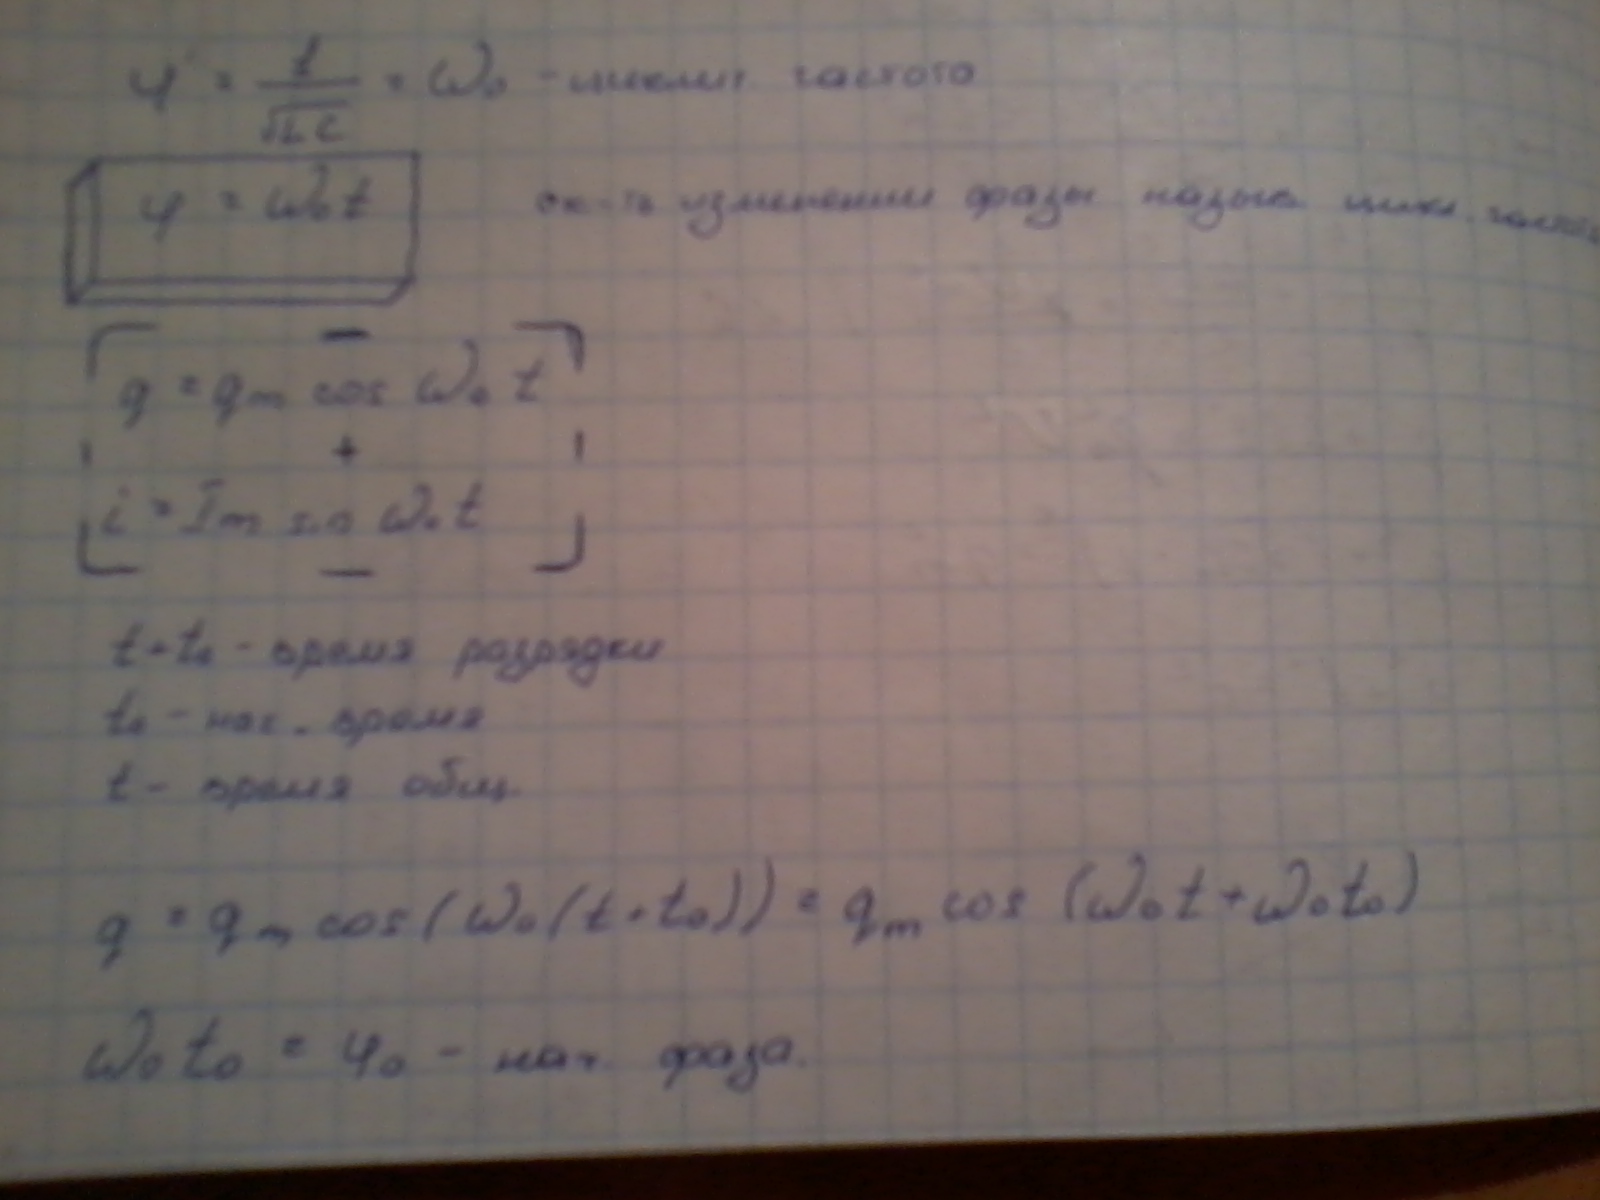 φ' = t/√LC = ω₀ - циклич частота
φ = ω₀t
ск-ть изменения фазы назыв. цикл. частота
q = qm cos ω₀ t
+
i = Im sin ω₀ t
t+t₀ - время разрядки
t₀ - нач. время
t - время общ.
q = qm cos(ω₀(t+t₀)) = qm cos (ω₀t + ω₀t₀)
ω₀t₀ = φ₀ - нач. фаза.